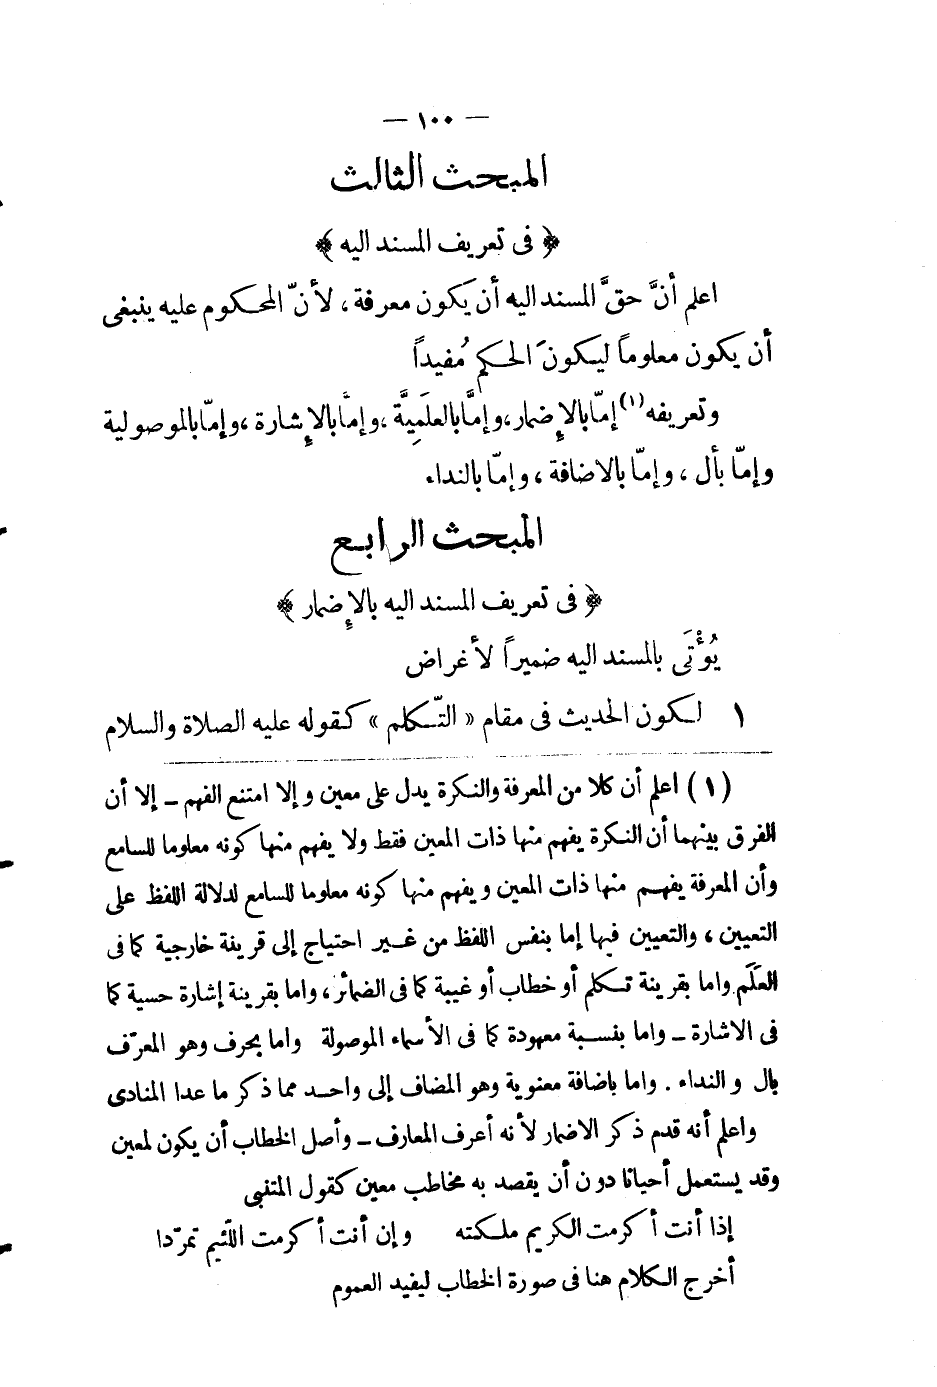 — ١٠٠ —
المبحث الثالث
﴿ فى تعريف المسند اليه ﴾
اعلم أنَّ حقَّ المسند اليه أن يكون معرفة ، لأنّ المحكوم عليه ينبغى
أن يكون معلوماً ليكونَ الحكم مُفيداً
وتعريفه (١) إمّا بالإضمار، وإمَّا بالعلَمِيَّة ، وإمّا بالإشارة ، وإمّا بالموصولية
وإمّا بأل ، وإمّا بالاضافة ، وإمّا بالنداء
المبحث الرابع
﴿ فى تعريف المسند اليه بالإضمار ﴾
يُؤْتَى بالمسند اليه ضميراً لأغراض
١ لكون الحديث فى مقام « التّكلم » كقوله عليه الصلاة والسلام
(١) اعلم أن كلا من المعرفة والنكرة يدل على معين وإلا امتنع الفهم – إلا أن
الفرق بينهما أن النكرة يفهم منها ذات المعين فقط ولا يفهم منها كونه معلوما للسامع
وأن المعرفة يفهم منها ذات المعين ويفهم منها كونه معلوما للسامع لدلالة اللفظ على
التعيين ، والتعيين فيها إما بنفس اللفظ من غير احتياج إلى قرينة خارجية كما فى
العَلَم واما بقرينة تكلم أو خطاب أو غيبة كما فى الضمائر ، واما بقرينة إشارة حسية كما
فى الاشارة – واما بنسبة معهودة كما فى الأسماء الموصولة واما بحرف وهو المعرّف
بال والنداء . واما باضافة معنوية وهو المضاف إلى واحد مما ذكر ما عدا المنادى
واعلم أنه قدم ذكر الاضمار لأنه أعرف المعارف – وأصل الخطاب أن يكون لمعين
وقد يستعمل أحيانا دون أن يقصد به مخاطب معين كقول المتنبى
إذا أنت أكرمت الكريم ملكته وإن أنت أكرمت اللّئيم تمرّدا
أخرج الكلام هنا فى صورة الخطاب ليفيد العموم